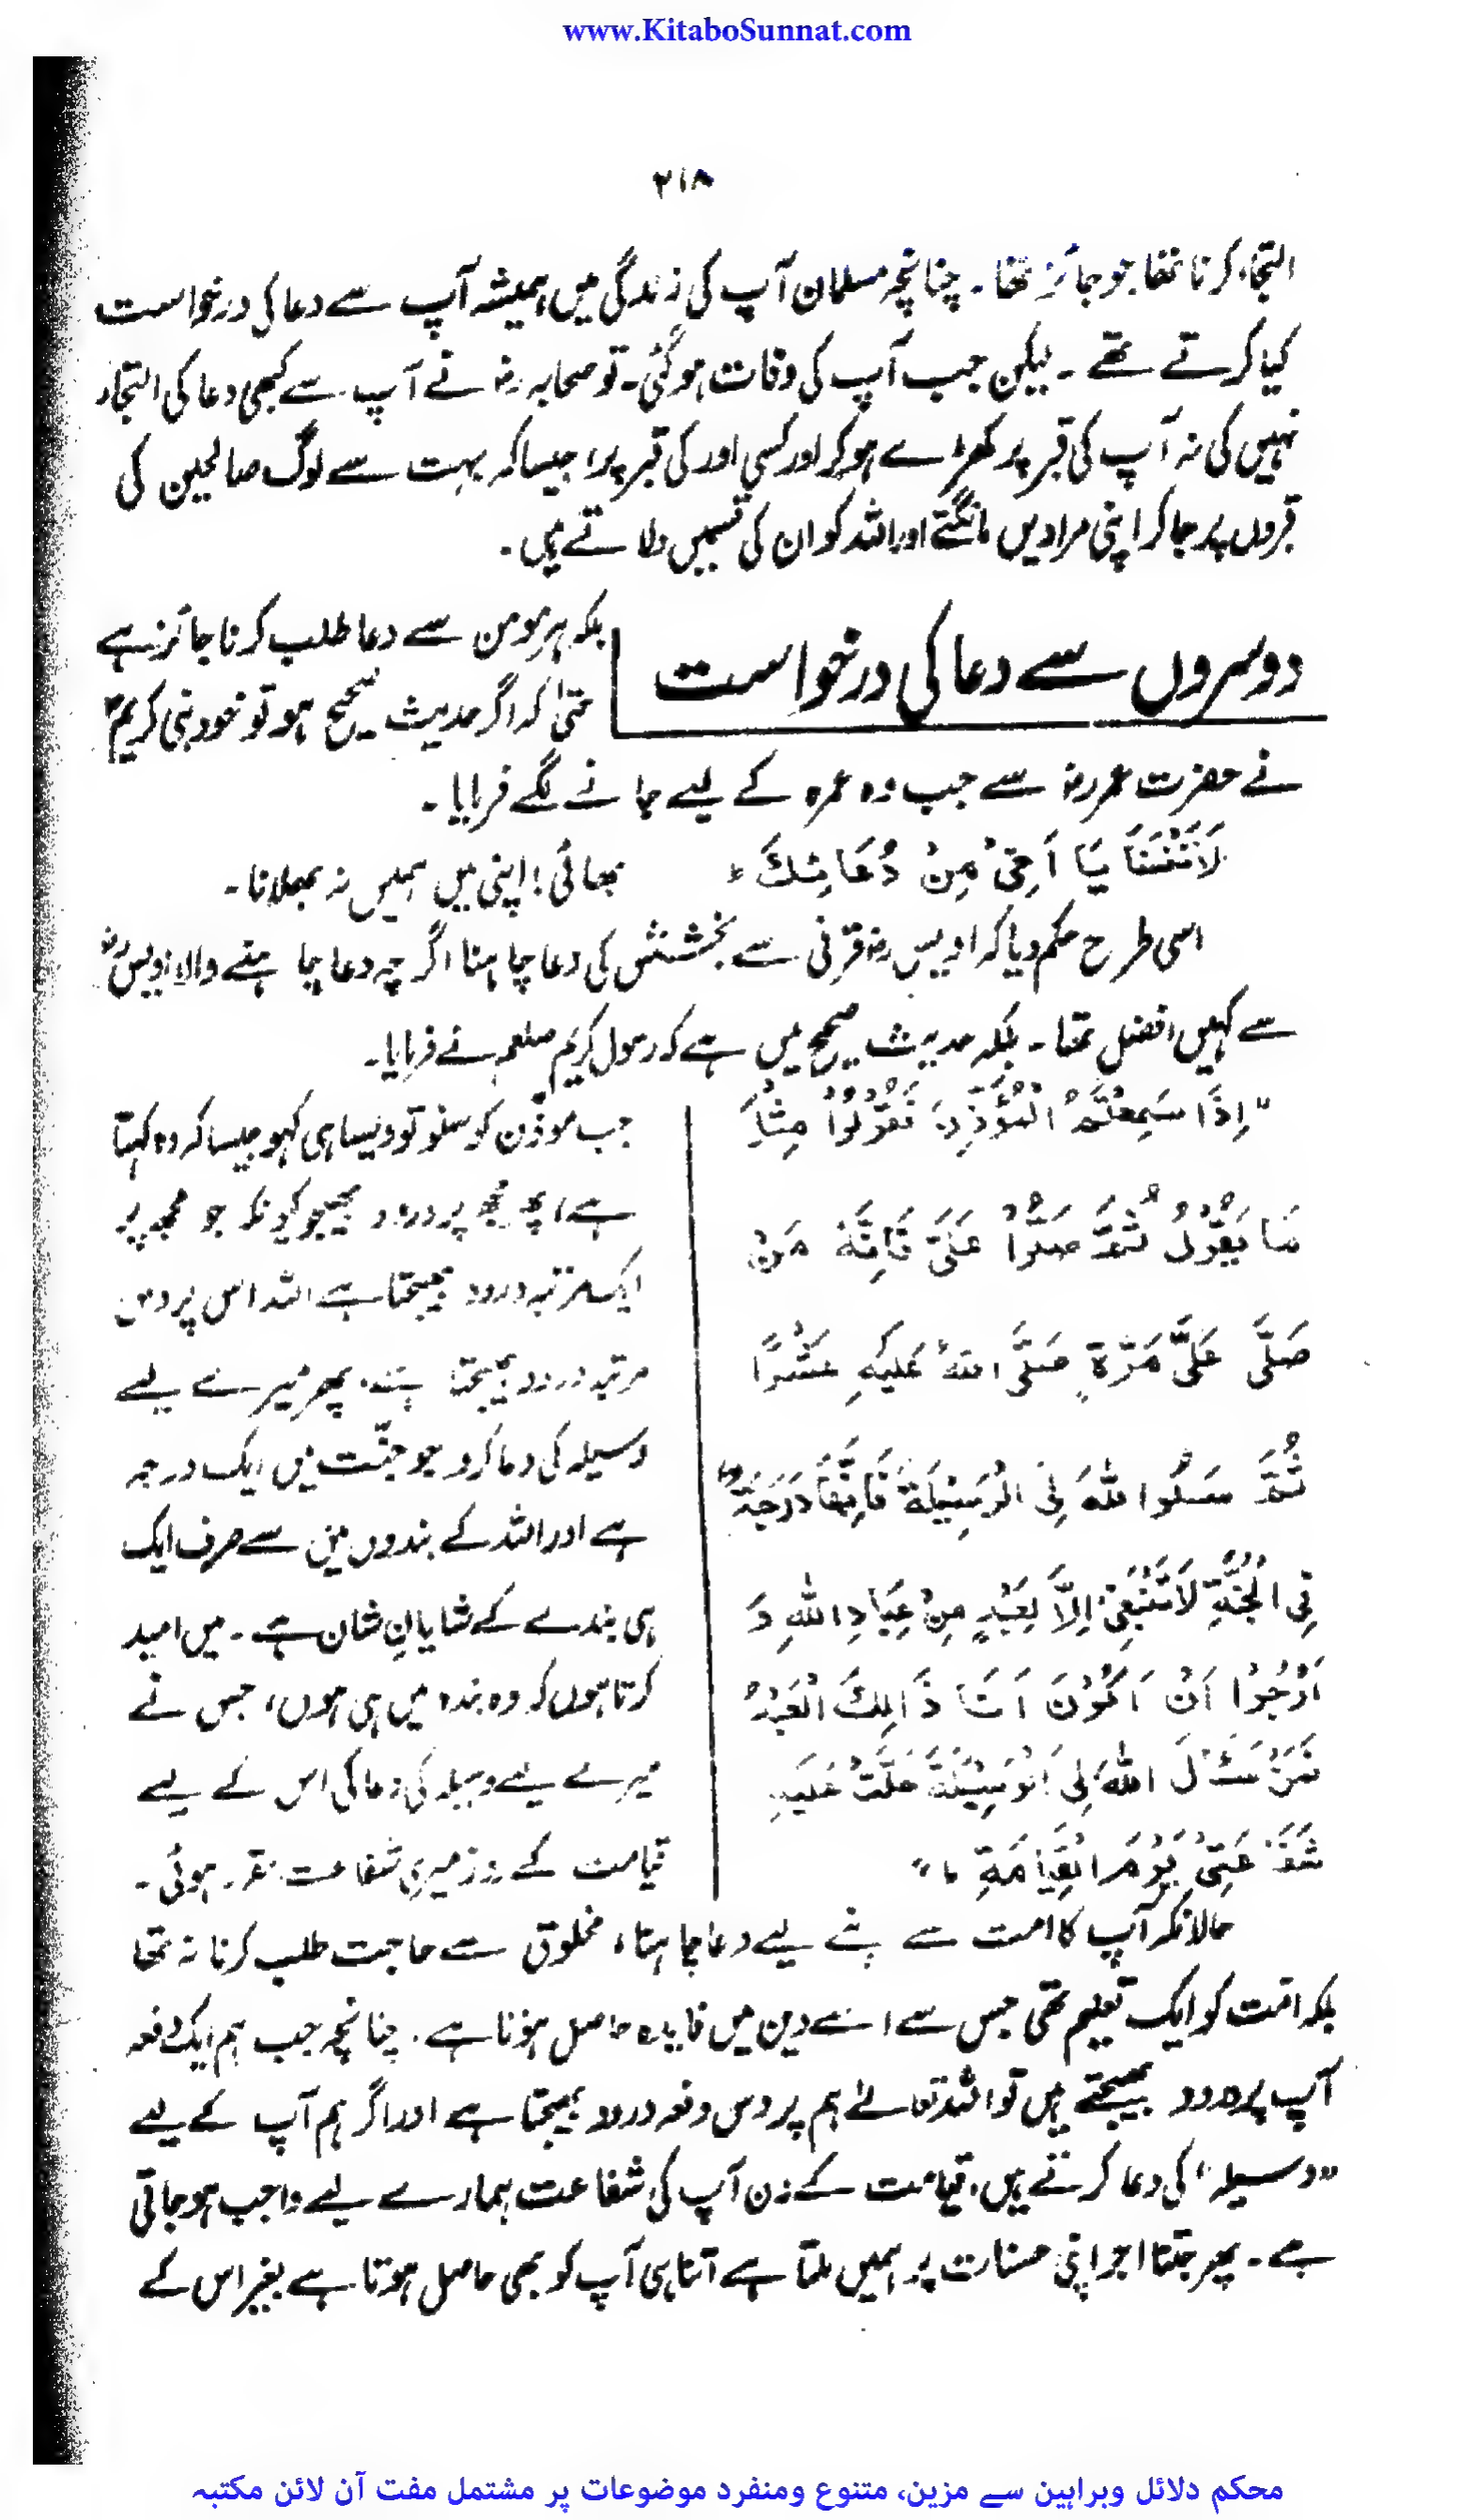 www.KitaboSunnat.com
۲۱۸
التجاء کرنا تھا جو جائز تھا۔ چنانچہ مسلمان آپ کی زندگی میں ہمیشہ آپ سے دعا کی درخواست
کیا کرتے تھے۔ لیکن جب آپ کی وفات ہوگئی۔ تو صحابہ رضہ نے آپ سے کبھی دعا کی التجاء
نہیں کی نہ آپ کی قبر پر کھڑے ہو کر اور کسی اور کی قبر پر، جیسا کہ بہت سے لوگ صالحین کی
قبروں پر جا کر اپنی مرادیں مانگتے اور اللہ کو ان کی قسمیں دلاتے ہیں۔
دوسروں سے دعا کی درخواست
بلکہ ہر مومن سے دعا طلب کرنا جائز ہے
حتیٰ کہ اگر حدیث صحیح ہو تو خود نبی کریمؐ
نے حضرت عمر رضہ سے جب وہ عمرہ کے لیے جانے لگے فرمایا۔
لَا تَنْسَنَا يَا اَخِیْ مِنْ دُعَائِكَ ؕ بھائی! اپنی میں ہمیں نہ بھلانا۔
اسی طرح حکم دیا کہ اویس رضہ قرنی سے بخشش کی دعا چاہنا اگرچہ دعا چاہنے والا اویسؓ
سے کہیں افضل تھا۔ بلکہ حدیث صحیح میں ہے کہ رسول کریم صلعم نے فرمایا۔
"اِذَا سَمِعْتُمُ الْمُؤَذِّنَ فَقُوْلُوْا مِثْلَ
مَا يَقُوْلُ ثُمَّ صَلُّوْا عَلَیَّ فَاِنَّهٗ مَنْ
صَلّٰی عَلَیَّ مَرَّةً صَلَّی اللهُ عَلَيْهِ عَشْرًا
ثُمَّ سَلُوا اللهَ لِیَ الْوَسِيْلَةَ فَاِنَّهَا دَرَجَةٌ
فِی الْجَنَّةِ لَا تَنْبَغِیْ اِلَّا لِعَبْدٍ مِنْ عِبَادِ اللهِ وَ
اَرْجُوْا اَنْ اَكُوْنَ اَنَا ذَالِكَ الْعَبْدُ
فَمَنْ سَئَلَ اللهَ لِیَ الْوَسِيْلَةَ حَلَّتْ عَلَيْهِ
شَفَاعَتِیْ يَوْمَ الْقِيَامَةِ ۔"
جب موذن کو سنو تو ویسا ہی کہو جیسا کہ وہ کہتا
ہے، پھر مجھ پر درود بھیجو کیونکہ جو مجھ پر
ایک مرتبہ درود بھیجتا ہے اللہ اس پر دس
مرتبہ درود بھیجتا ہے، پھر میرے لیے
وسیلہ کی دعا کرو جو جنّت میں ایک درجہ
ہے اور اللہ کے بندوں میں سے صرف ایک
ہی بندے کے شایانِ شان ہے۔ میں امید
کرتا ہوں کہ وہ بندہ میں ہی ہوں، جس نے
میرے لیے وسیلہ کی دعا کی اس کے لیے
قیامت کے روز میری شفاعت مقرر ہوئی۔
حالانکہ آپ کا امت سے اپنے لیے دعا چاہنا، مخلوق سے حاجت طلب کرنا نہ تھا
بلکہ امّت کو ایک تعلیم تھی جس سے اسے دین میں فایدہ حاصل ہوتا ہے۔ چنانچہ جب ہم ایک دفعہ
آپ پر درود بھیجتے ہیں تو اللہ تعالےٰ ہم پر دس دفعہ درود بھیجتا ہے اور اگر ہم آپ کے لیے
"وسیلہ" کی دعا کرتے ہیں، قیامت کے دن آپ کی شفاعت ہمارے لیے واجب ہو جاتی
ہے۔ پھر جتنا اجر اپنی حسنات پر ہمیں ملتا ہے اتنا ہی آپ کو بھی حاصل ہوتا ہے بغیر اس کے
محکم دلائل وبراہین سے مزین، متنوع ومنفرد موضوعات پر مشتمل مفت آن لائن مکتبہ